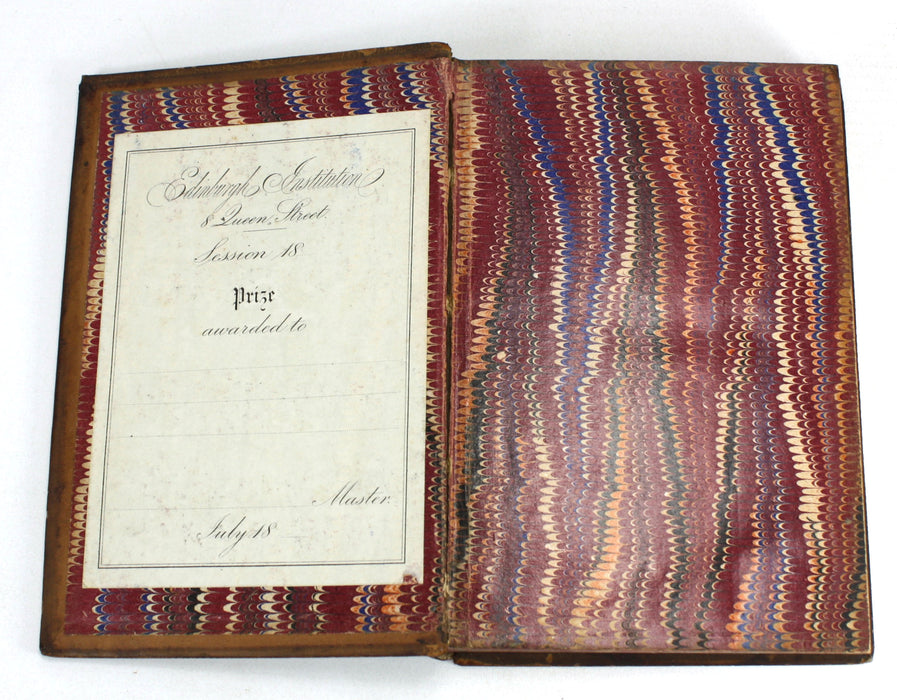 Edinburgh Institution
8 Queen Street.
Session 18
Prize
awarded to
Master.
July 18